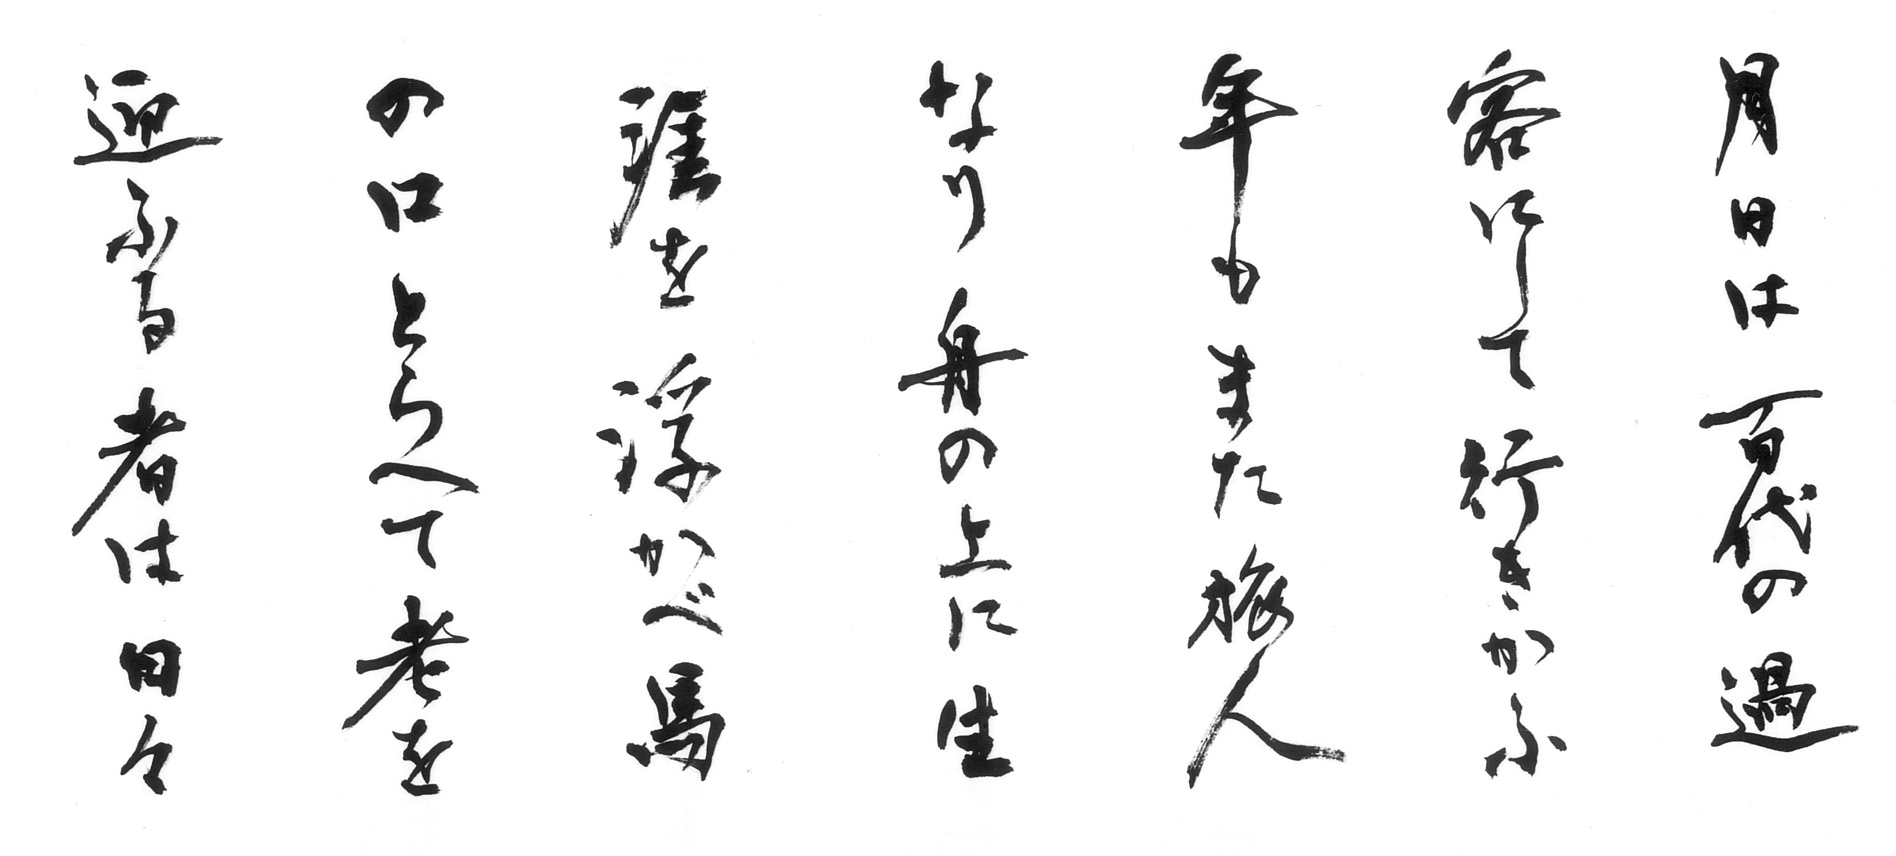 月日は百代の過
客にして行きかふ
年もまた旅人
なり舟の上に生
涯を浮かべ馬
の口とらへて老を
迎ふる者は日々